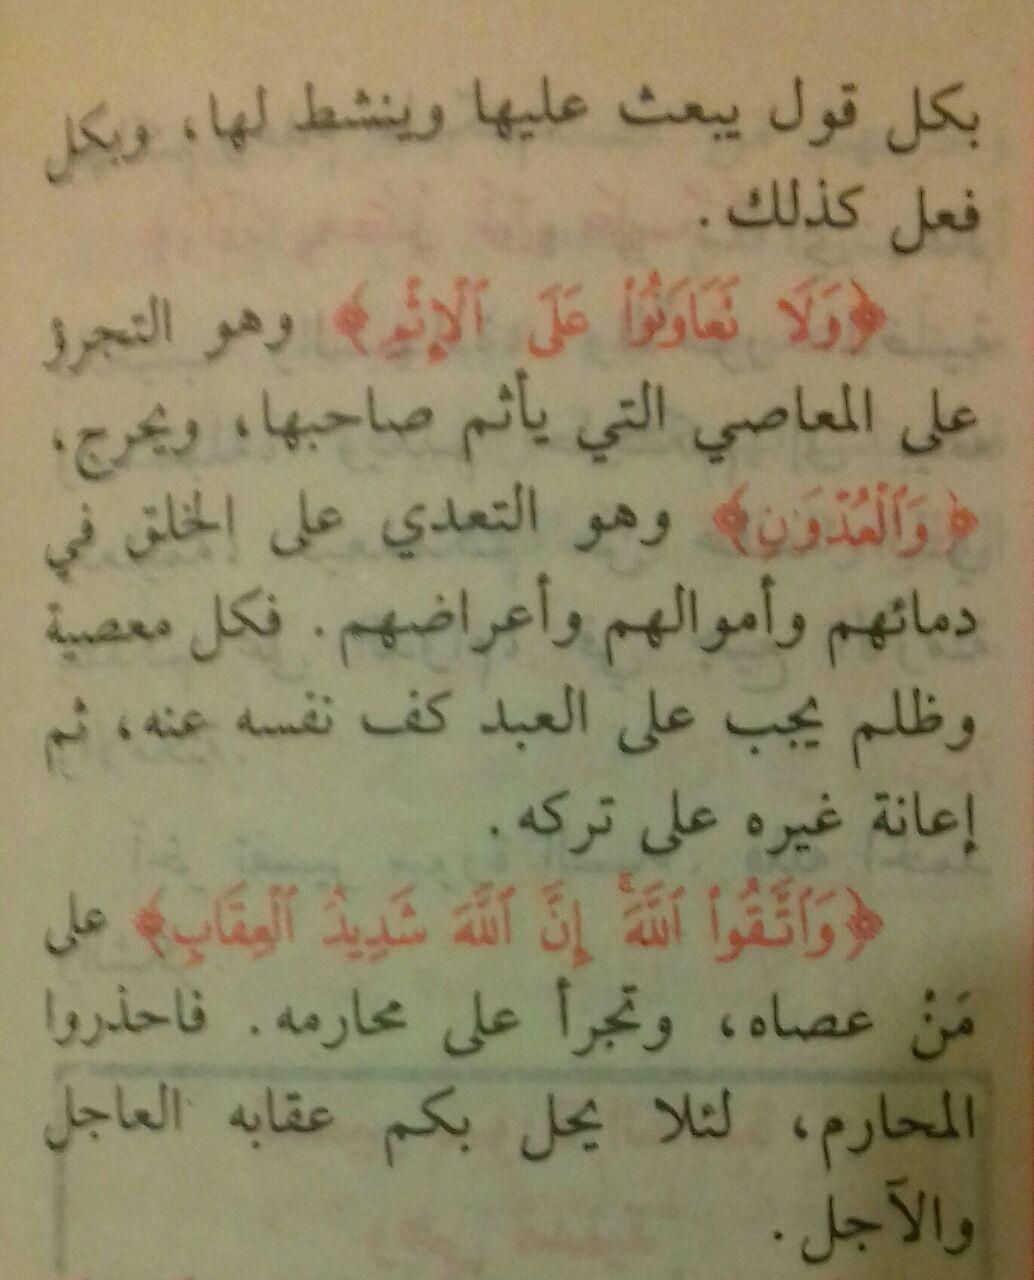 بكل قول يبعث عليها وينشط لها، وبكل
فعل كذلك.
﴿وَلَا تَعَاوَنُوا۟ عَلَى ٱلْإِثْمِ﴾ وهو التجرؤ
على المعاصي التي يأثم صاحبها، ويحرج.
﴿وَٱلْعُدْوَٰنِ﴾ وهو التعدي على الخلق في
دمائهم وأموالهم وأعراضهم. فكل معصية
وظلم يجب على العبد كف نفسه عنه، ثم
إعانة غيره على تركه.
﴿وَٱتَّقُوا۟ ٱللَّهَ ۖ إِنَّ ٱللَّهَ شَدِيدُ ٱلْعِقَابِ﴾ على
مَنْ عصاه، وتجرأ على محارمه. فاحذروا
المحارم، لئلا يحل بكم عقابه العاجل
والآجل.